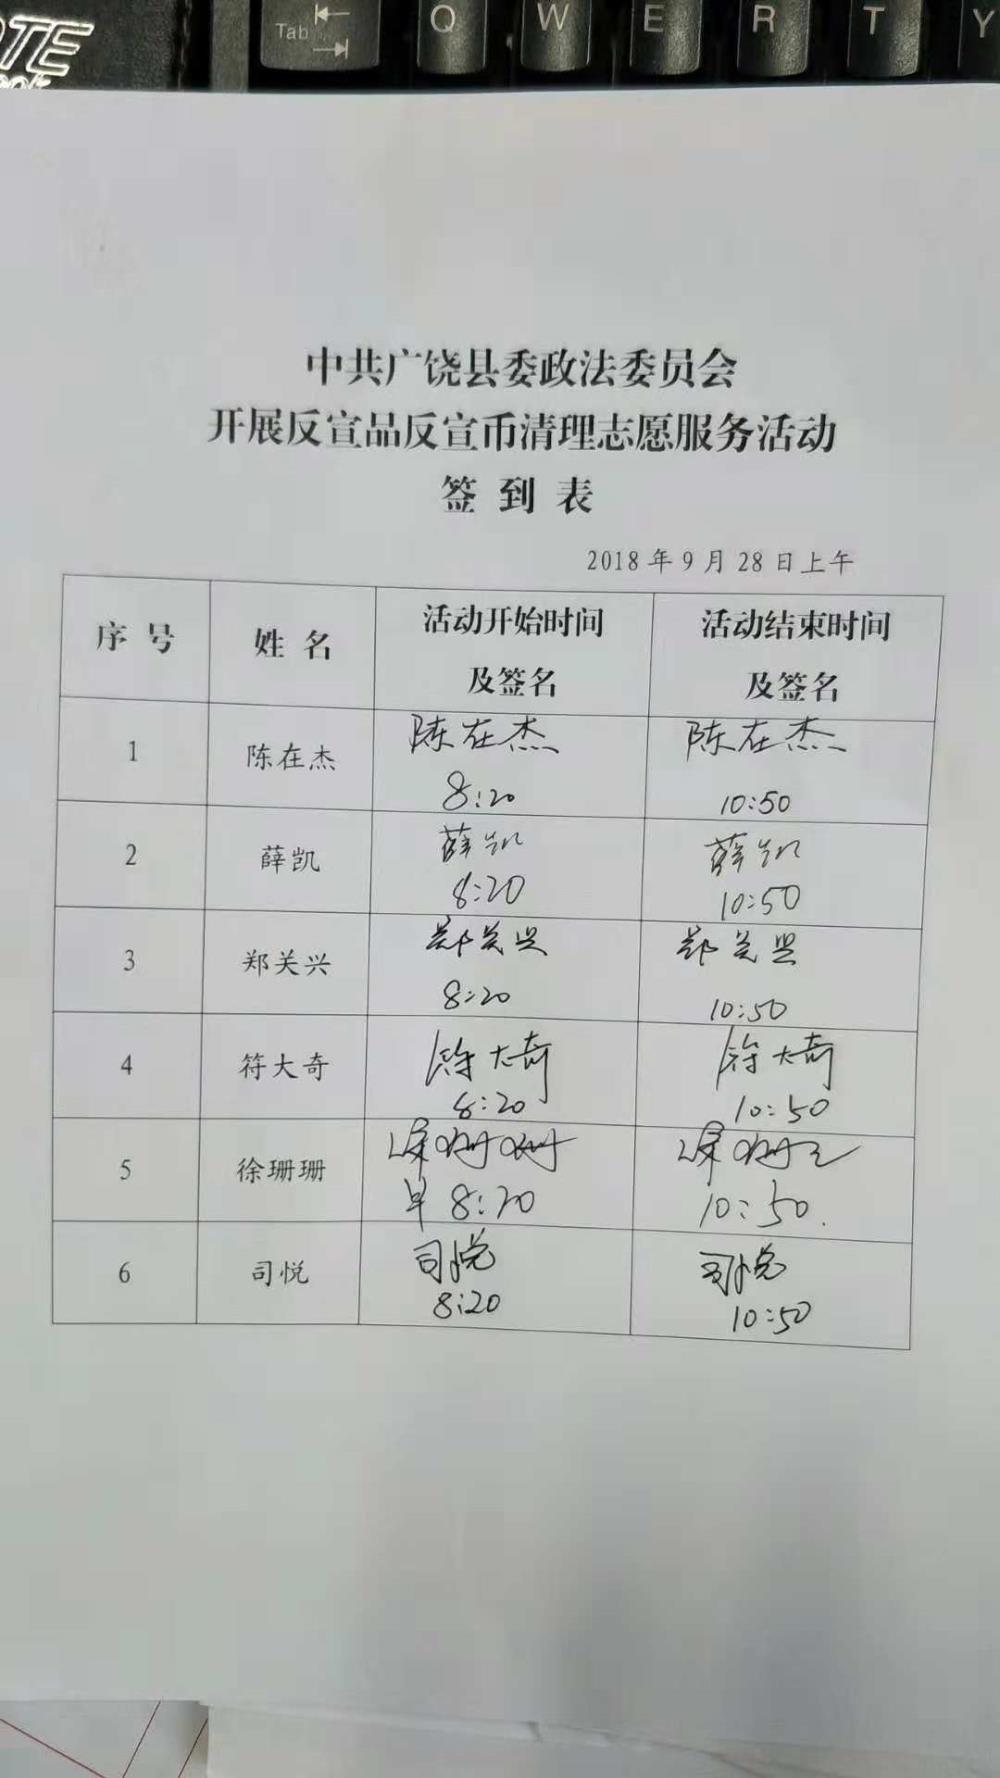 Tab
Q W E R T Y
中共广饶县委政法委员会
开展反宣品反宣币清理志愿服务活动
签到表
2018年9月28日上午
序号 姓名 活动开始时间及签名 活动结束时间及签名
1 陈在杰 陈在杰 8:20 陈在杰 10:50
2 薛凯 薛凯 8:20 薛凯 10:50
3 郑关兴 郑关兴 8:20 郑关兴 10:50
4 符大奇 符大奇 8:20 符大奇 10:50
5 徐珊珊 徐珊珊 早8:20 徐珊珊 10:50.
6 司悦 司悦 8:20 司悦 10:50